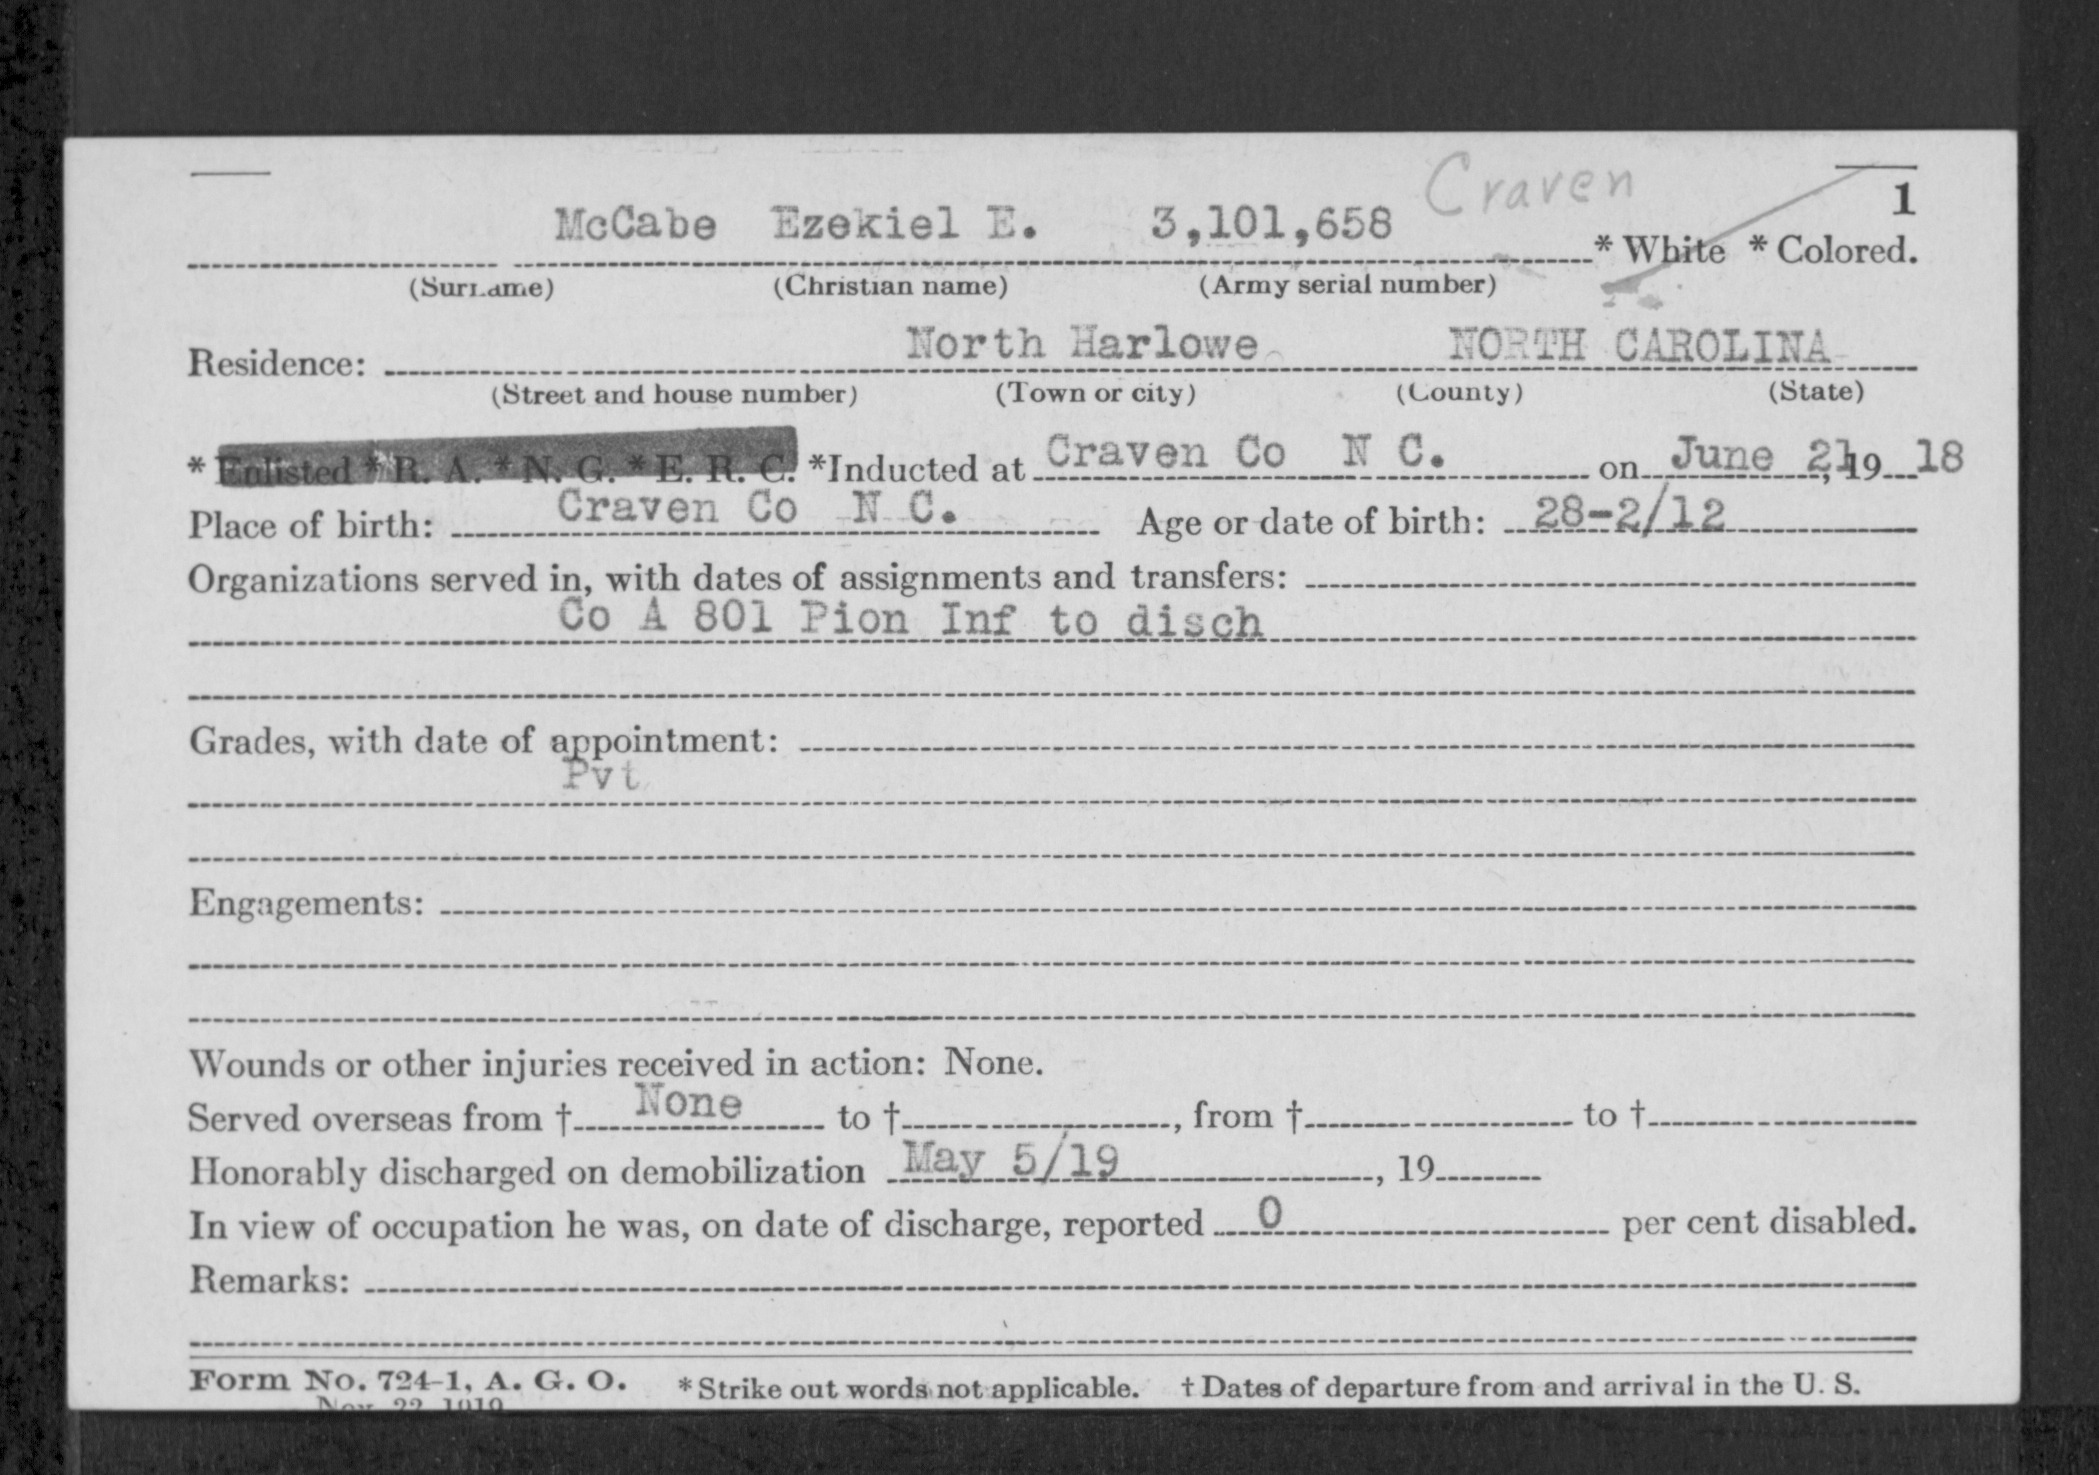 Craven
1
McCabe Ezekiel E. 3,101,658 * White * Colored.
(Surname) (Christian name) (Army serial number)
North Harlowe NORTH CAROLINA
Residence:
(Street and house number) (Town or city) (County) (State)
* Enlisted * R. A. * N. G. * E. R. C. *Inducted at Craven Co N C. on June 21, 19 18
Place of birth: Craven Co N C. Age or date of birth: 28-2/12
Organizations served in, with dates of assignments and transfers:
Co A 801 Pion Inf to disch
Grades, with date of appointment:
Pvt
Engagements:
Wounds or other injuries received in action: None.
Served overseas from † None to †, from † to †
Honorably discharged on demobilization May 5/19, 19
In view of occupation he was, on date of discharge, reported 0 per cent disabled.
Remarks:
Form No. 724-1, A. G. O. * Strike out words not applicable. † Dates of departure from and arrival in the U. S.
Nov. 22 1919